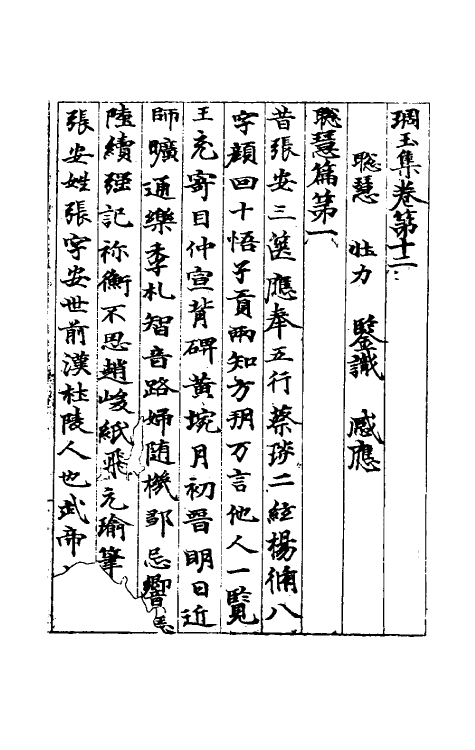 琱玉集卷第十二
聡慧 壯力 鑒識 感應
聡慧篇第一
昔張安三篋應奉五行蔡琰二紙楊脩八
字顔回十悟子貢兩知方朔万言他人一覽
王充寄目仲宣背碑黄埦月初晋明日近
師曠通樂季札智音路婦随機鄒忌響
陸續强記祢衡不忘趙峻紙飛元瑜筆
張安姓張字安世前漢杜陵人也武帝